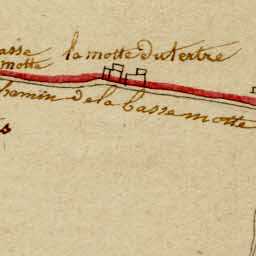 asse
motte
la motte du tertre
hemin de la basse motte
s